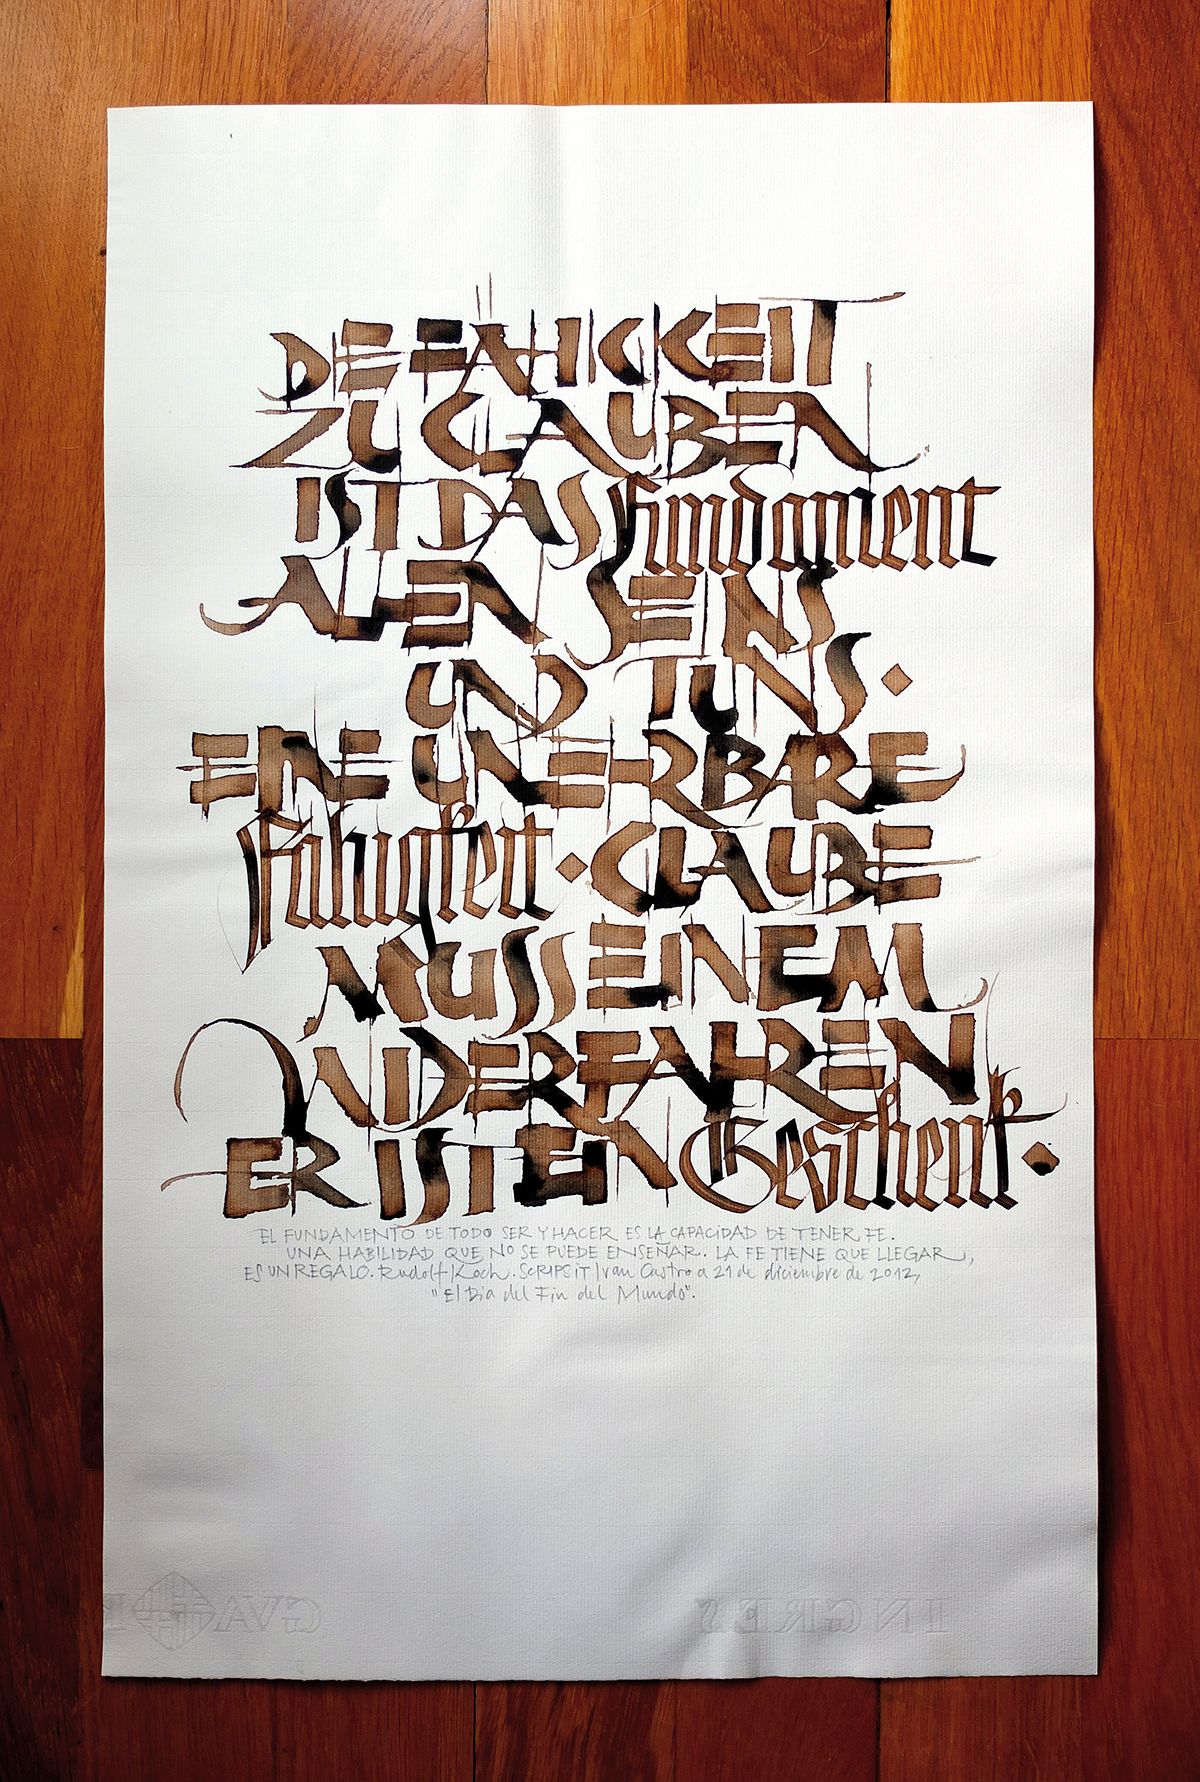 DIE FÄHIGKEIT
ZU GLAUBEN
IST DAS Fundament
ALLEN SEINS
UND TUNS ·
EINE UNLEHRBARE
Fähigkeit · GLAUBE
MUSS EINEM
WIDERFAHREN
ER IST EIN Geschenk ·
EL FUNDAMENTO DE TODO SER Y HACER ES LA CAPACIDAD DE TENER FE.
UNA HABILIDAD QUE NO SE PUEDE ENSEÑAR. LA FE TIENE QUE LLEGAR,
ES UN REGALO. Rudolf Koch. SCRIPSIT Ivan Castro a 21 de diciembre de 2012,
"El Dia del Fin del Mundo".
INGRES